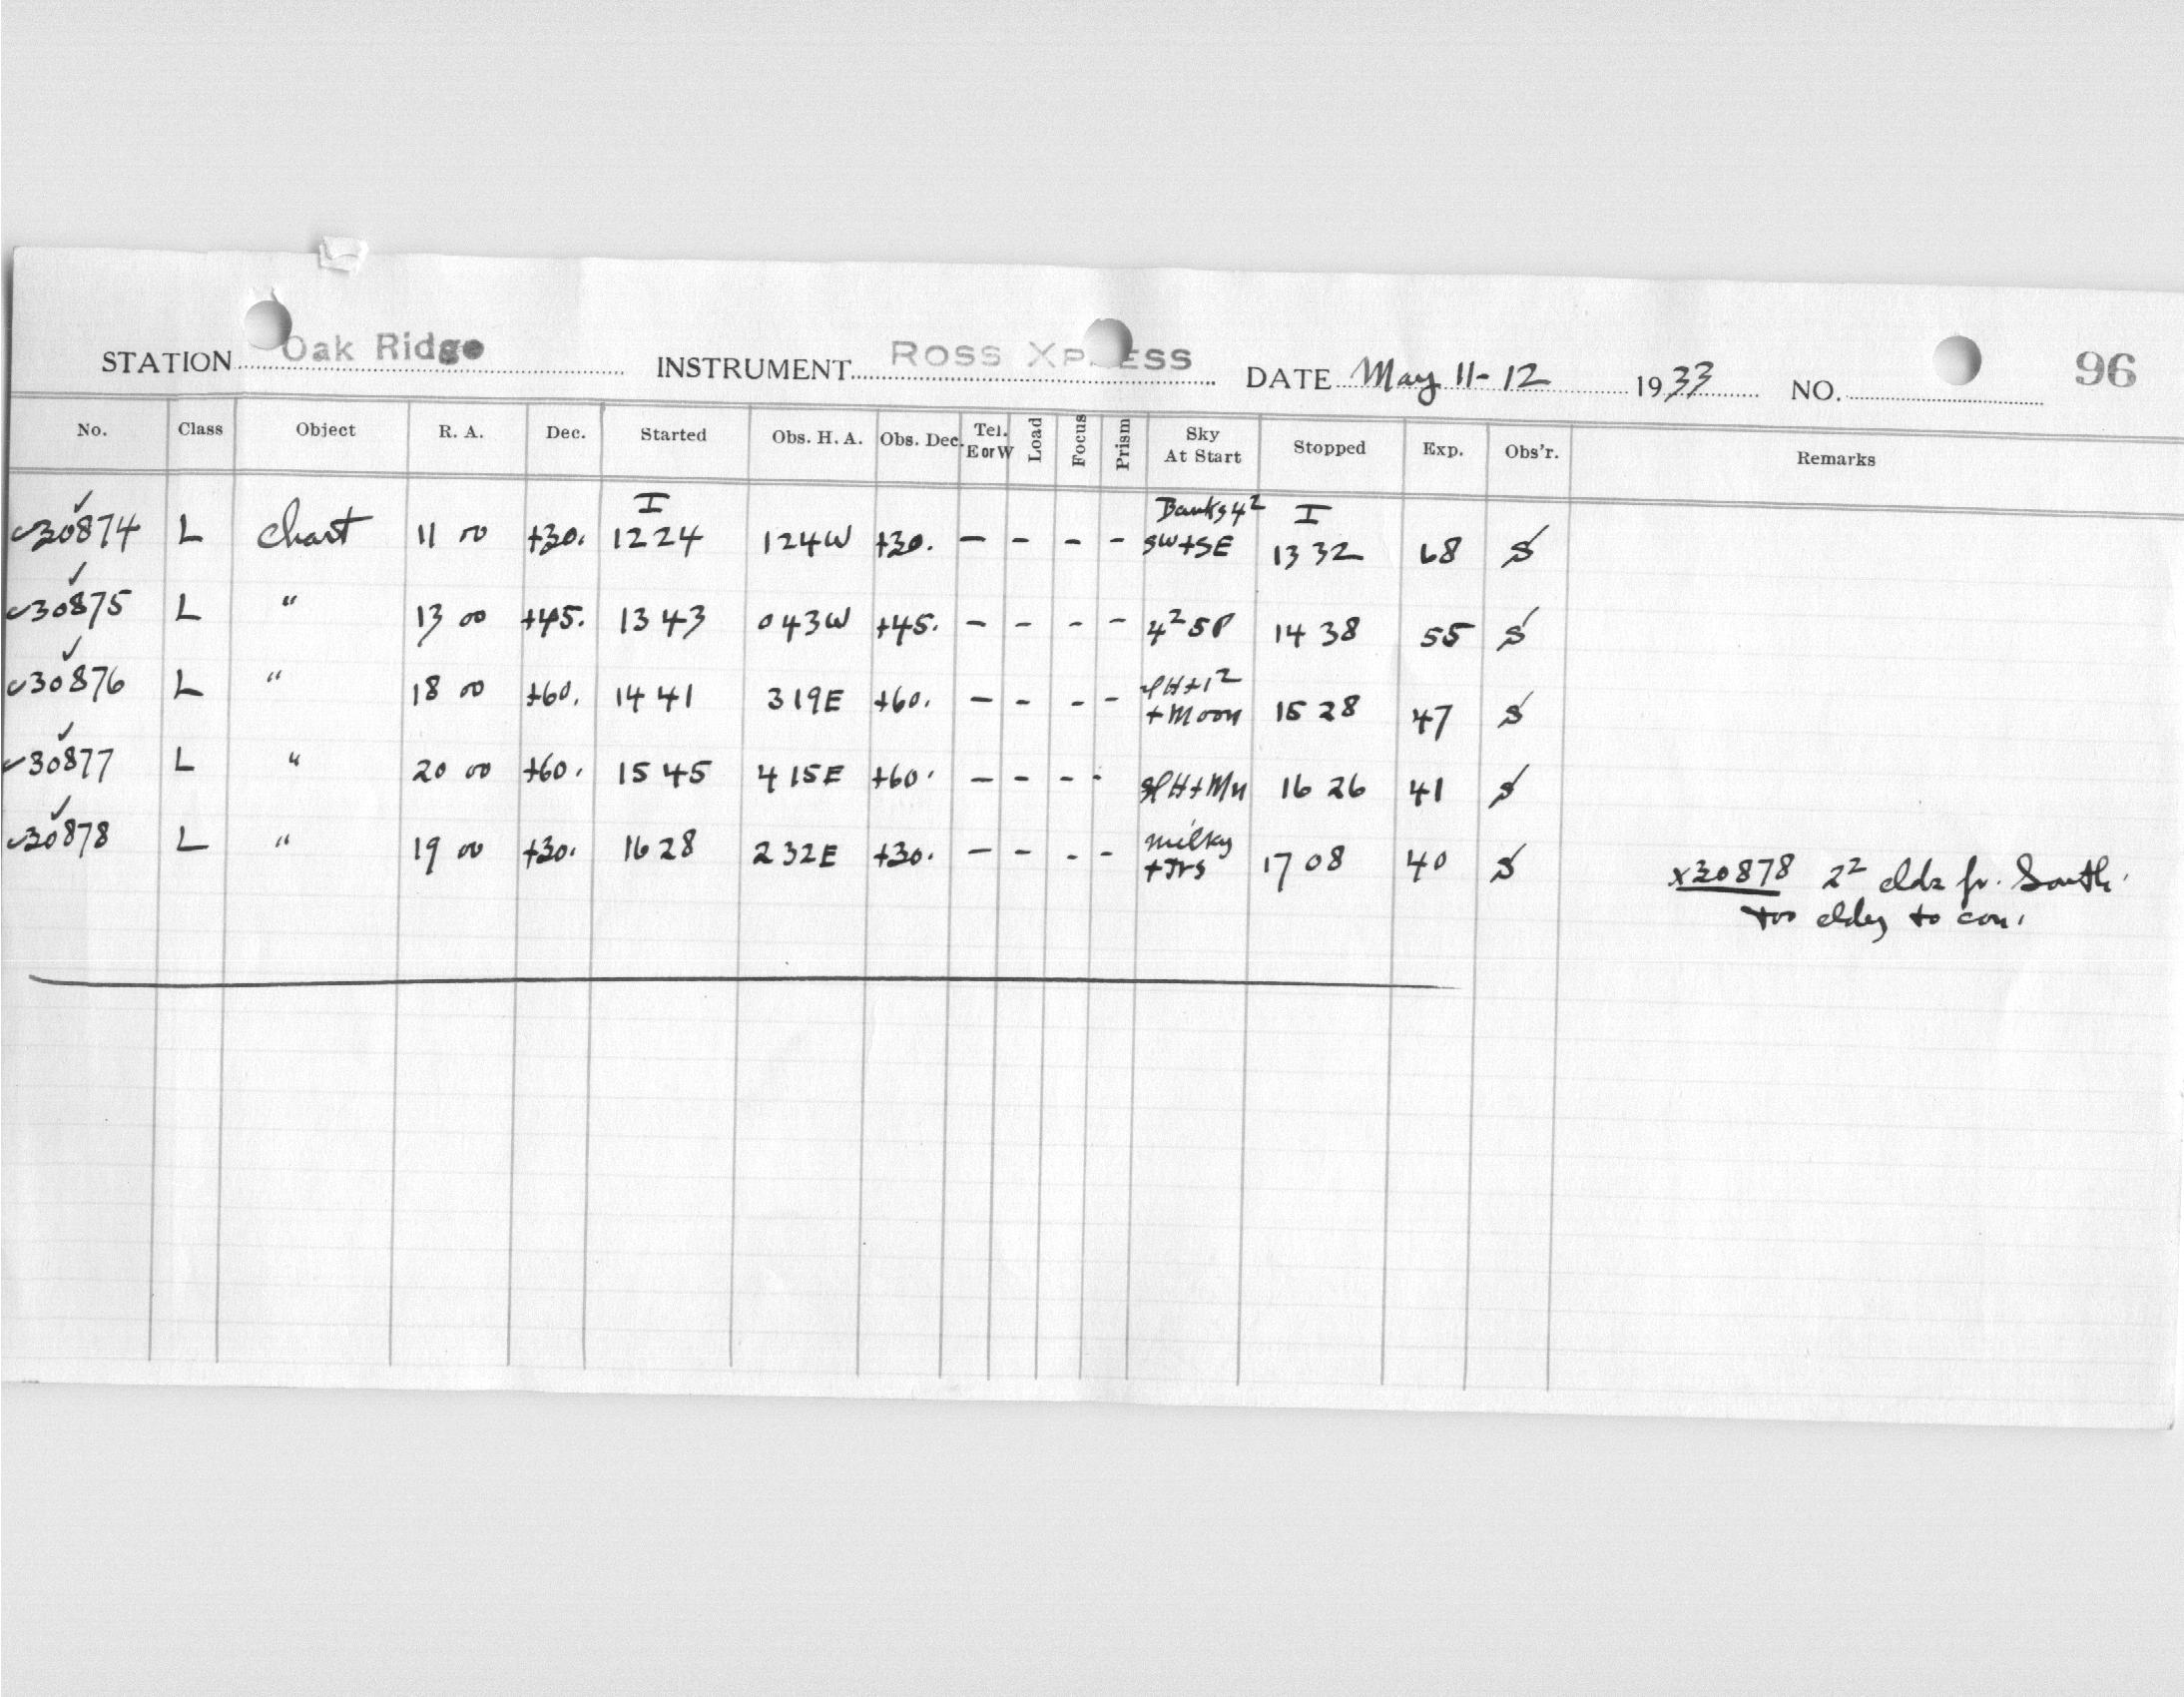 STATION Oak Ridge INSTRUMENT ROSS XP ESS DATE May 11-12 1933 NO. 96
No. Class Object R. A. Dec. Started Obs. H. A. Obs. Dec. Tel. E or W Load Focus Prism Sky At Start Stopped Exp. Obs'r. Remarks
I Banks 4² I
✓30874 L Chart 11 00 +30. 12 24 1 24W +30. - - - - SW+SE 13 32 68 S
✓30875 L " 13 00 +45. 13 43 0 43W +45. - - - - 4² 5P 14 38 55 S
✓30876 L " 18 00 +60. 14 41 3 19E +60. - - - - +Moon 15 28 47 S
✓30877 L " 20 00 +60. 15 45 4 15E +60. - - - - 16 26 41 S
✓30878 L " 19 00 +30. 16 28 2 32E +30. - - - - milky 17 08 40 S
x30878 2² clds fr. South.
too cldy to con.